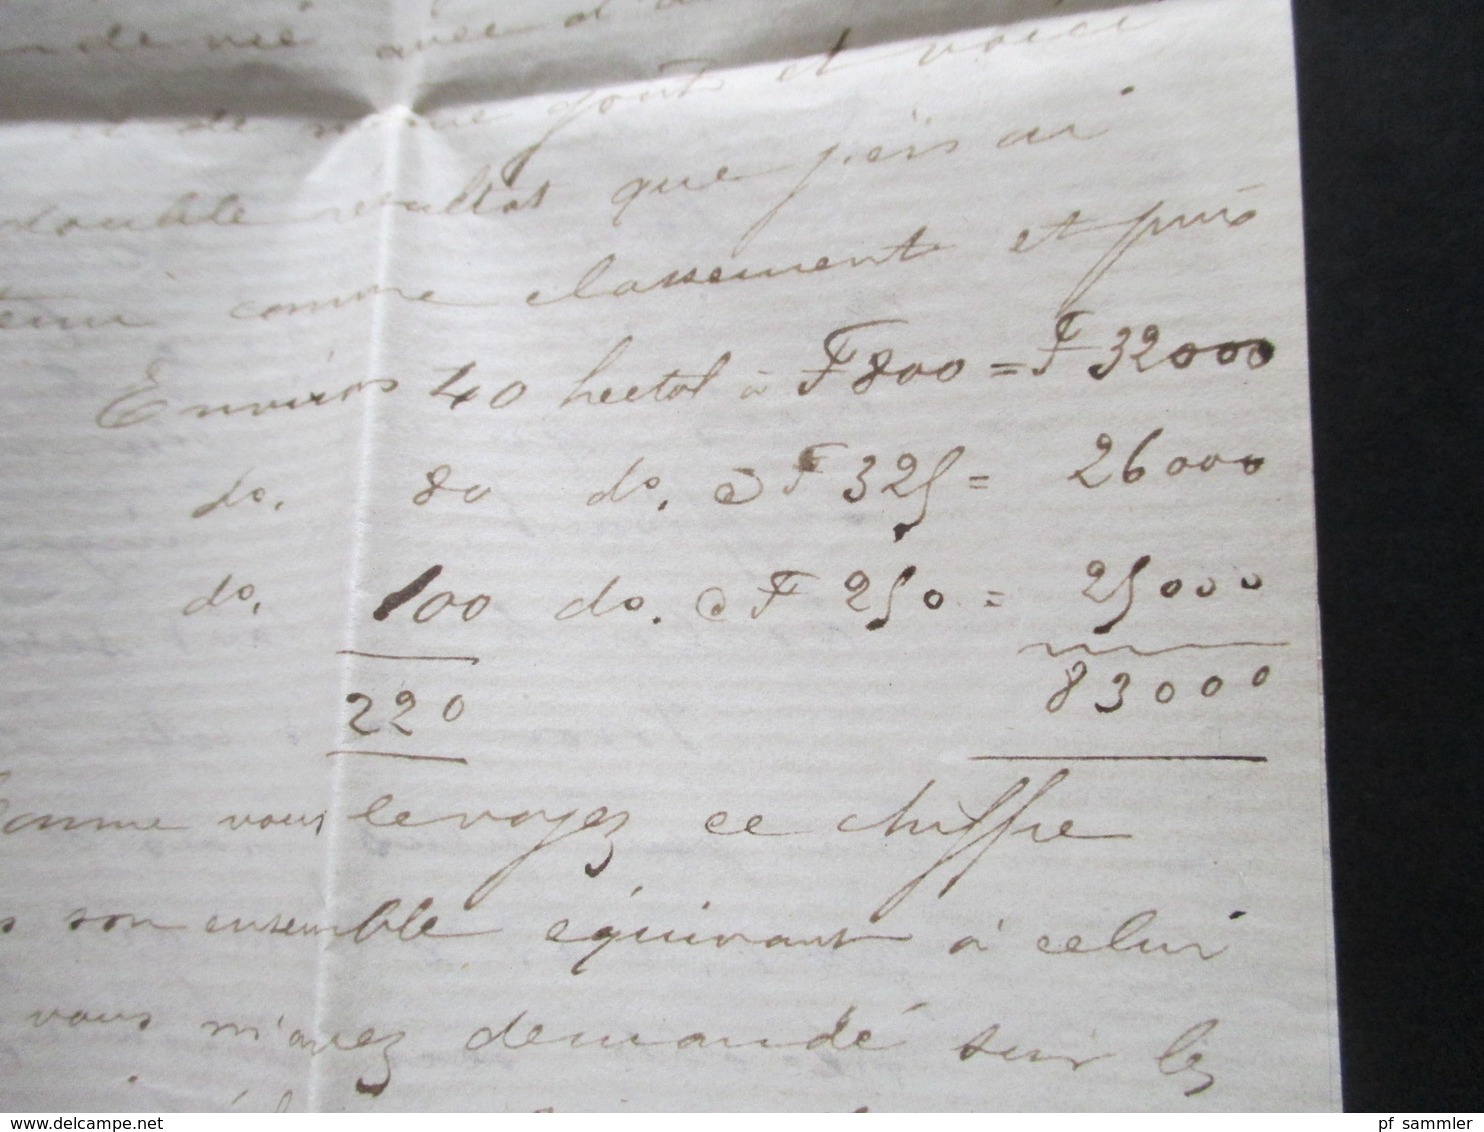 avec
et de même goût et voici
double résultat que j'en ai
comme classement et prix
Environ 40 hectol à F 800 = F 32000
do. 80 do. à F 325 = 26000
do. 100 do. à F 250 = 25000
220 83000
Comme vous le voyez ce chiffre
son ensemble équivaut à celui
vous m'avez demandé sur les
pf_sammler